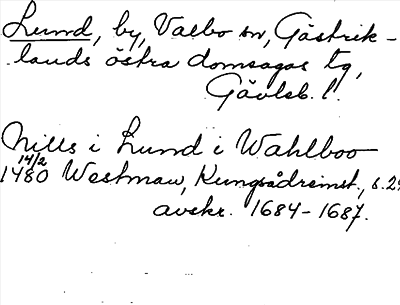 Lund, by, Valbo sn, Gästrik-
lands östra domsagas tg,
Gävleb. l.
Nills i Lund i Wahlboo
14/2
1480 Westman, Kungsådreinst., s. 29
avskr. 1684-1687.